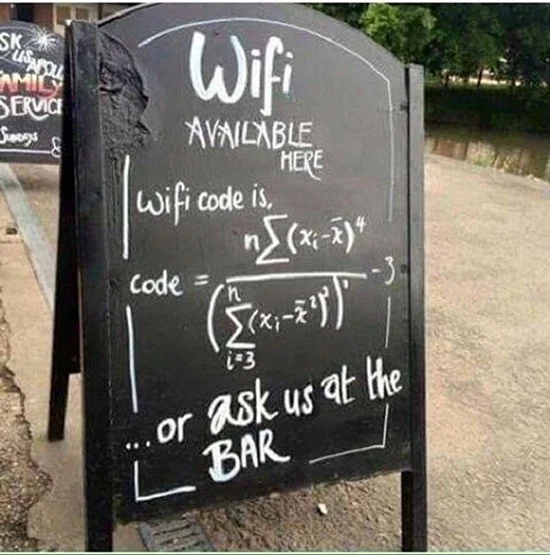 SK
US ABOU
AMILY
SERVICE
SUNDAYS
Wifi
AVAILABLE
HERE
Wifi code is,
code = n∑(xᵢ-x̄)⁴ / (∑ⁿᵢ₌₃(xᵢ-x̄²)²)² - 3
...or ask us at the
BAR